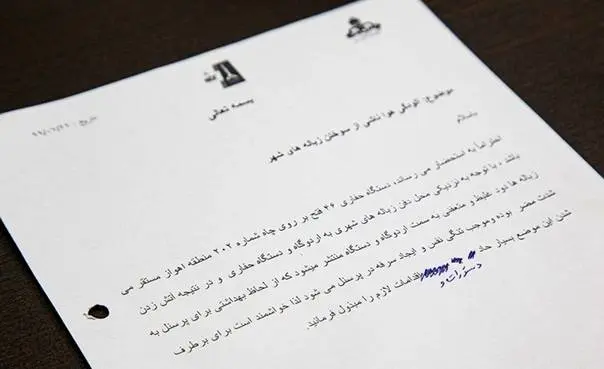 بسمه تعالی
تاریخ: ۹۷/۰۶/۲۱
موضوع: آلودگی هوا ناشی از سوختن زباله های شهر
باسلام
احتراماً به استحضار می رساند، دستگاه حفاری ۴۶ فتح بر روی چاه شماره ۲۰۲ منطقه اهواز مستقر می
باشد ، با توجه به نزدیکی محل دفن زباله های شهری به اردوگاه و دستگاه حفاری و در نتیجه آتش زدن
زباله ها دود غلیظ و متعفنی به سمت اردوگاه و دستگاه منتشر میشود که از لحاظ بهداشتی برای پرسنل به
شدت مضر بوده وموجب تنگی نفس و ایجاد سرفه در پرسنل می شود لذا خواشمند است برای برطرف
شدن این موضع بسیار حاد دستورات و اقدامات لازم را مبذول فرمائید.